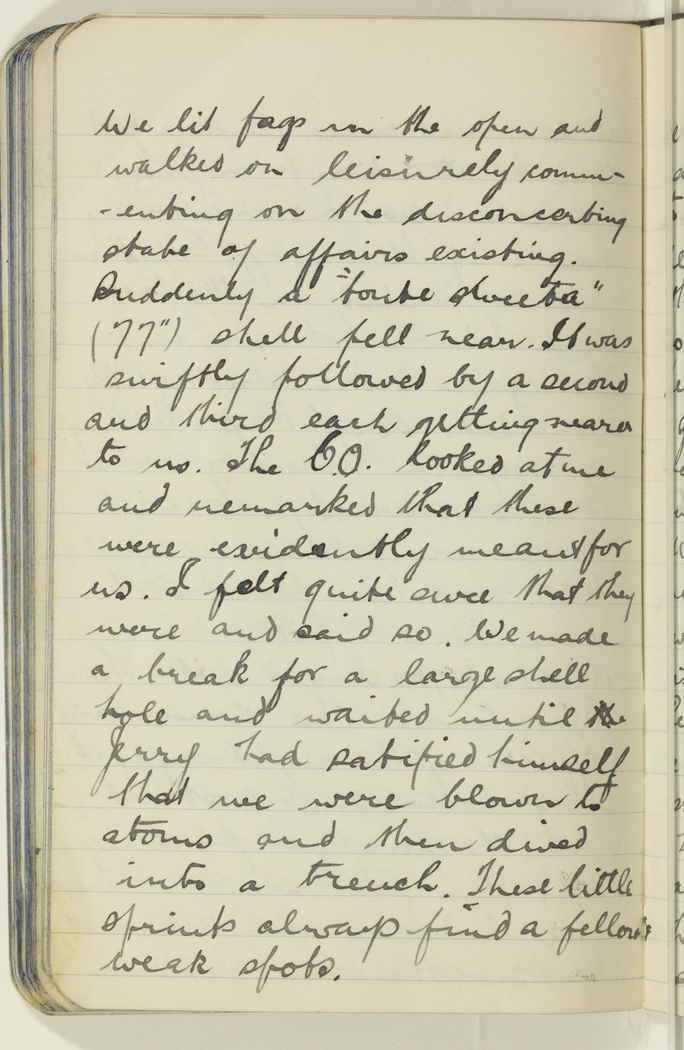 We lit fags in the open and
walked on leisurely comm-
-enting on the disconcerting
state of affairs existing.
Suddenly a "toute sweeta"
("77") shell fell near. It was
swiftly followed by a second
and third each getting nearer
to us. The C.O. looked at me
and remarked that these
were evidently meant for
us. I felt quite sure that they
were and said so. We made
a break for a large shell
hole and waited until the
Jerry had satified himself
that we were blown to
atoms and then dived
into a trench. These little
sprints always find a fellow's
weak spots.